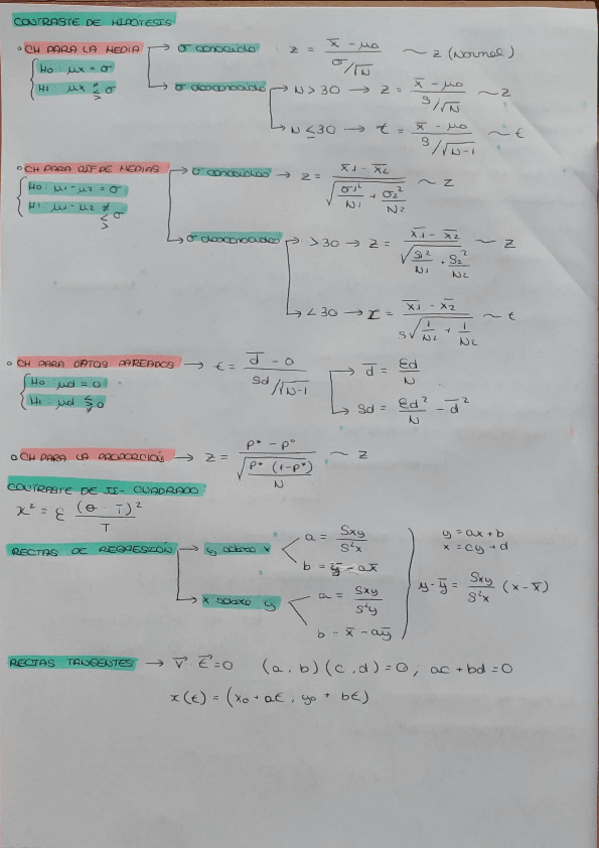 CONTRASTE DE HIPOTESIS
CH PARA LA MEDIA → σ conocida z = (x̄ - μ0) / (σ/√N) ~ z (Normal)
H0: μx = σ
H1: μx ≠ < > σ
σ desconocida → N > 30 → z = (x̄ - μ0) / (s/√N) ~ z
N ≤ 30 → t = (x̄ - μ0) / (s/√N-1) ~ t
CH PARA DIF DE MEDIAS → σ conocidas → z = (x̄1 - x̄2) / √(σ1²/N1 + σ2²/N2) ~ z
H0: μ1 - μ2 = σ
H1: μ1 - μ2 ≠ < > σ
σ desconocidas → > 30 → z = (x̄1 - x̄2) / √(S1²/N1 + S2²/N2) ~ z
< 30 → t = (x̄1 - x̄2) / s√(1/N1 + 1/N2) ~ t
CH PARA DATOS PAREADOS → t = (d̄ - 0) / (Sd/√N-1) → d̄ = Ɛd/N
H0: μd = 0
H1: μd < > ≠ 0
→ Sd = Ɛd²/N - d̄²
CH PARA LA PROPORCIÓN → z = (p* - p°) / √(p* (1-p*)/N) ~ z
CONTRASTE DE JI-CUADRADO
x² = Ɛ (θ - T)² / T
RECTAS DE REGRESIÓN → y sobre x a = Sxy/S²x
b = ȳ - ax̄
x sobre y a = Sxy/S²y
b = x̄ - aȳ
y = ax + b
x = cy + d
y - ȳ = Sxy/S²x (x - x̄)
RECTAS TANGENTES → v⃗ · t⃗ = 0 (a, b) (c, d) = 0, ac + bd = 0
x(t) = (x0 + at, y0 + bt)